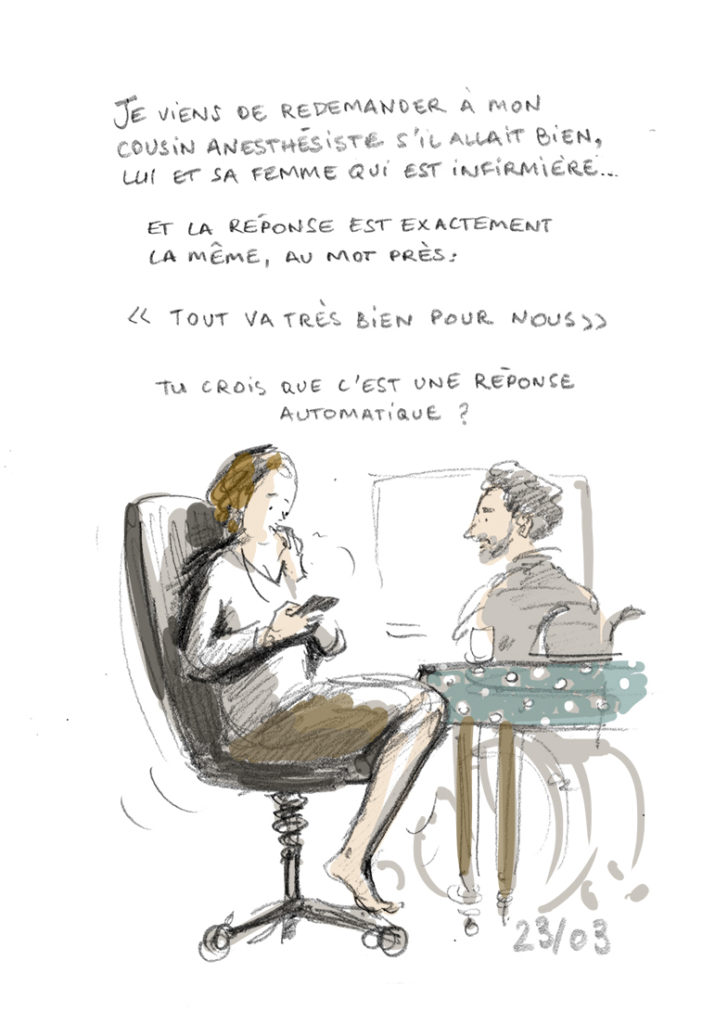 JE VIENS DE REDEMANDER À MON
COUSIN ANESTHÉSISTE S'IL ALLAIT BIEN,
LUI ET SA FEMME QUI EST INFIRMIÈRE...
ET LA RÉPONSE EST EXACTEMENT
LA MÊME, AU MOT PRÈS:
« TOUT VA TRÈS BIEN POUR NOUS»
TU CROIS QUE C'EST UNE RÉPONSE
AUTOMATIQUE ?
23/03